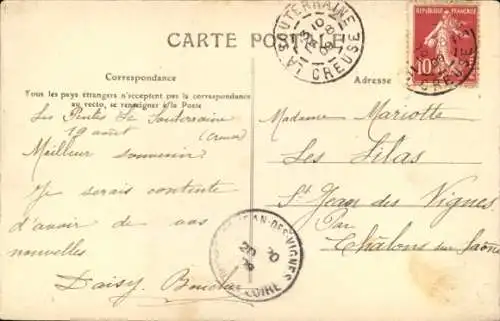 CARTE POSTALE
LA SOUTERRAINE
CREUSE
REPUBLIQUE FRANÇAISE
10
Correspondance
Adresse
Tous les pays étrangers n'acceptent pas la correspondance
au recto, se renseigner à la Poste
Les Pentes La Souterraine
19 août (Creuse)
Meilleur souvenir
Je serais contente
d'avoir de vos
nouvelles
Daisy
Madame Mariotte
Les Lilas
St Jean des Vignes
Par
Châlons sur Saône
JEAN-DES-VIGNES
20
LOIRE